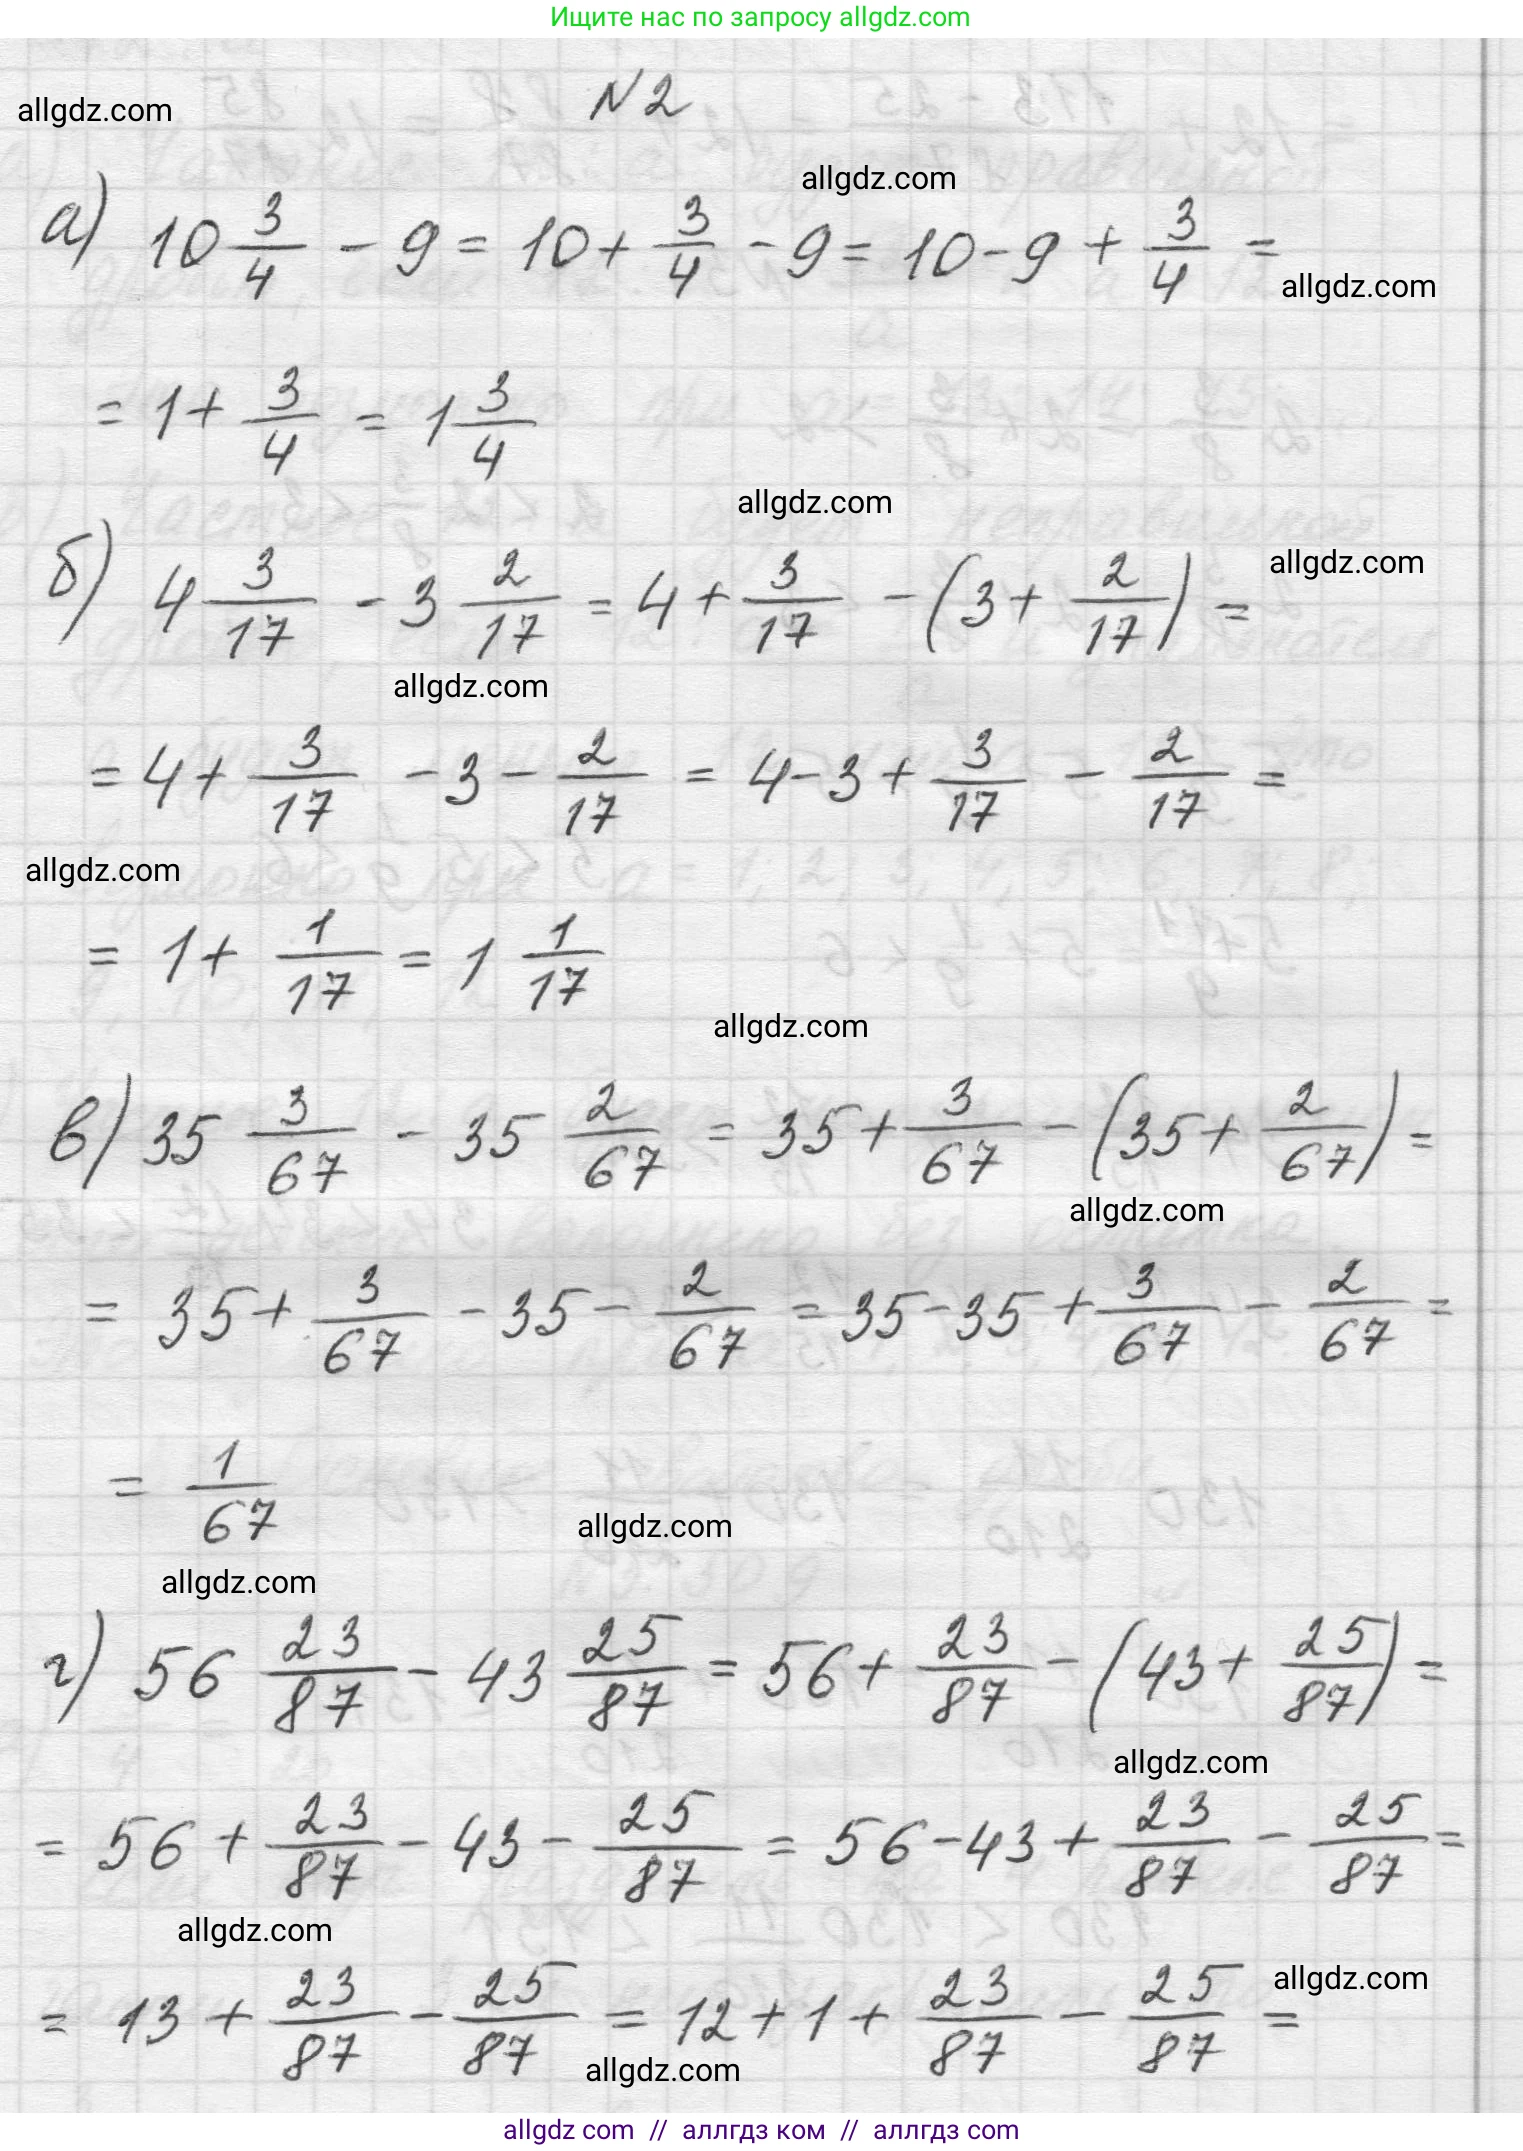 Ищите нас по запросу allgdz.com
allgdz.com
N 2
allgdz.com
а) 10 3/4 - 9 = 10 + 3/4 - 9 = 10 - 9 + 3/4 =
allgdz.com
= 1 + 3/4 = 1 3/4
allgdz.com
allgdz.com
б) 4 3/17 - 3 2/17 = 4 + 3/17 - (3 + 2/17) =
allgdz.com
= 4 + 3/17 - 3 - 2/17 = 4 - 3 + 3/17 - 2/17 =
allgdz.com
= 1 + 1/17 = 1 1/17
allgdz.com
в) 35 3/67 - 35 2/67 = 35 + 3/67 - (35 + 2/67) =
allgdz.com
= 35 + 3/67 - 35 - 2/67 = 35 - 35 + 3/67 - 2/67 =
= 1/67
allgdz.com
allgdz.com
г) 56 23/87 - 43 25/87 = 56 + 23/87 - (43 + 25/87) =
allgdz.com
= 56 + 23/87 - 43 - 25/87 = 56 - 43 + 23/87 - 25/87 =
allgdz.com
allgdz.com
= 13 + 23/87 - 25/87 = 12 + 1 + 23/87 - 25/87 =
allgdz.com
allgdz com // аллгдз ком // аллгдз com